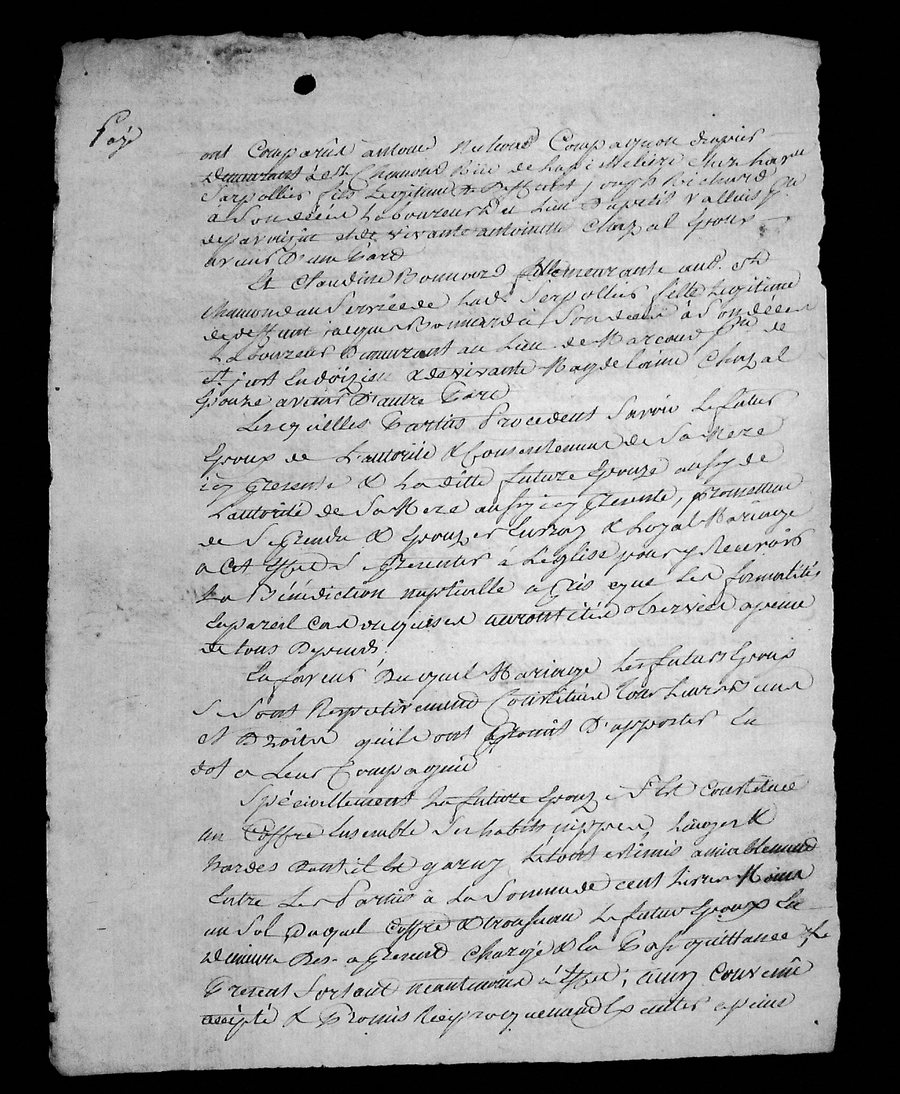 Payé
ont Comparûs antoine Richard Compagnon drapier
demeurant a st Chamond Rüe de La
Serpollier fils Legitime de deffunt joseph Richard
a Son décès Laboureur du Lieu
de paroisse et de vivante antoinette Chazal Epoux
avenir D'une Part
Et Claudine Bonnard fille demeurante aud. st
Chamond au Service de Lad. Serpollier fille Legitime
de deffunt jacques Bonnard à Son décès
Laboureur Demurant au Lieu de Marcoud psse de
st just En doizieu & de vivante Magdelaine Chazal
Epouze avenir D'autre Part
Lesquelles Parties Procedent Savoir Le futur
Epoux de L'autorité & Consentement de Sa Mere
icy Presente & Laditte future Epouze aussy de
L'autorité de Sa Mere aussy icy Presente, promettent
de Se Prendre & Epouzer En vray & Loyal Mariage
a Cet Effet Se Presenter à L'Eglise pour y Recevoir
La Bénédiction nuptialle aprés que Les formalités
En pareil Cas requises auront étées observées a peine
de tous Depends.
En faveur Duquel Mariage Les futurs Epoux
Se Sont Respectivement Constitués tous Leurs
et Droits qu'ils ont Promit D'apporter En
dot en Leur Compagnie
Spéciallement La future Epouze S'est Constituée
un Coffre Ensemble Ses habits nippes Linges &
hardes Dont il Est garny Le tout Estimés amiablement
Entre Les Parties à La Somme de cent Livres Moins
un Sol Duquel Coffre & trousseau Le futur Epoux En
Demeure Des a Present Chargé & La Passe quittance, Le
Present Sortant neantmoins à Effet; ainsy Convenû
accepté & Promis Reciproquement Les parties a peine